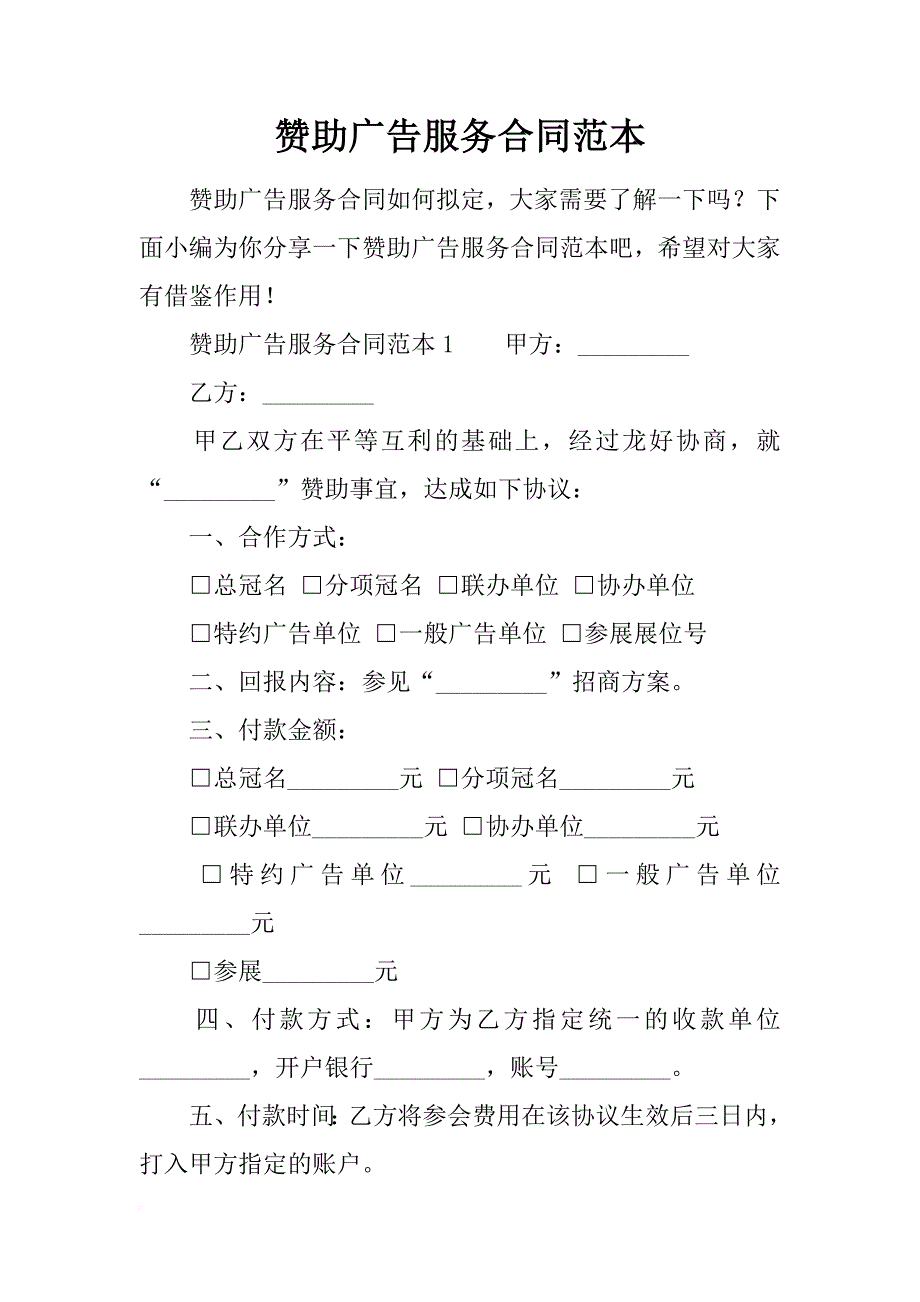 赞助广告服务合同范本
赞助广告服务合同如何拟定，大家需要了解一下吗？下
面小编为你分享一下赞助广告服务合同范本吧，希望对大家
有借鉴作用！
赞助广告服务合同范本1 甲方：_________
乙方：_________
甲乙双方在平等互利的基础上，经过龙好协商，就
“_________”赞助事宜，达成如下协议：
一、合作方式：
□总冠名 □分项冠名 □联办单位 □协办单位
□特约广告单位 □一般广告单位 □参展展位号
二、回报内容：参见“_________”招商方案。
三、付款金额：
□总冠名_________元 □分项冠名_________元
□联办单位_________元 □协办单位_________元
□特约广告单位_________元 □一般广告单位
_________元
□参展_________元
四、付款方式：甲方为乙方指定统一的收款单位
_________，开户银行_________，账号_________。
五、付款时间：乙方将参会费用在该协议生效后三日内，
打入甲方指定的账户。